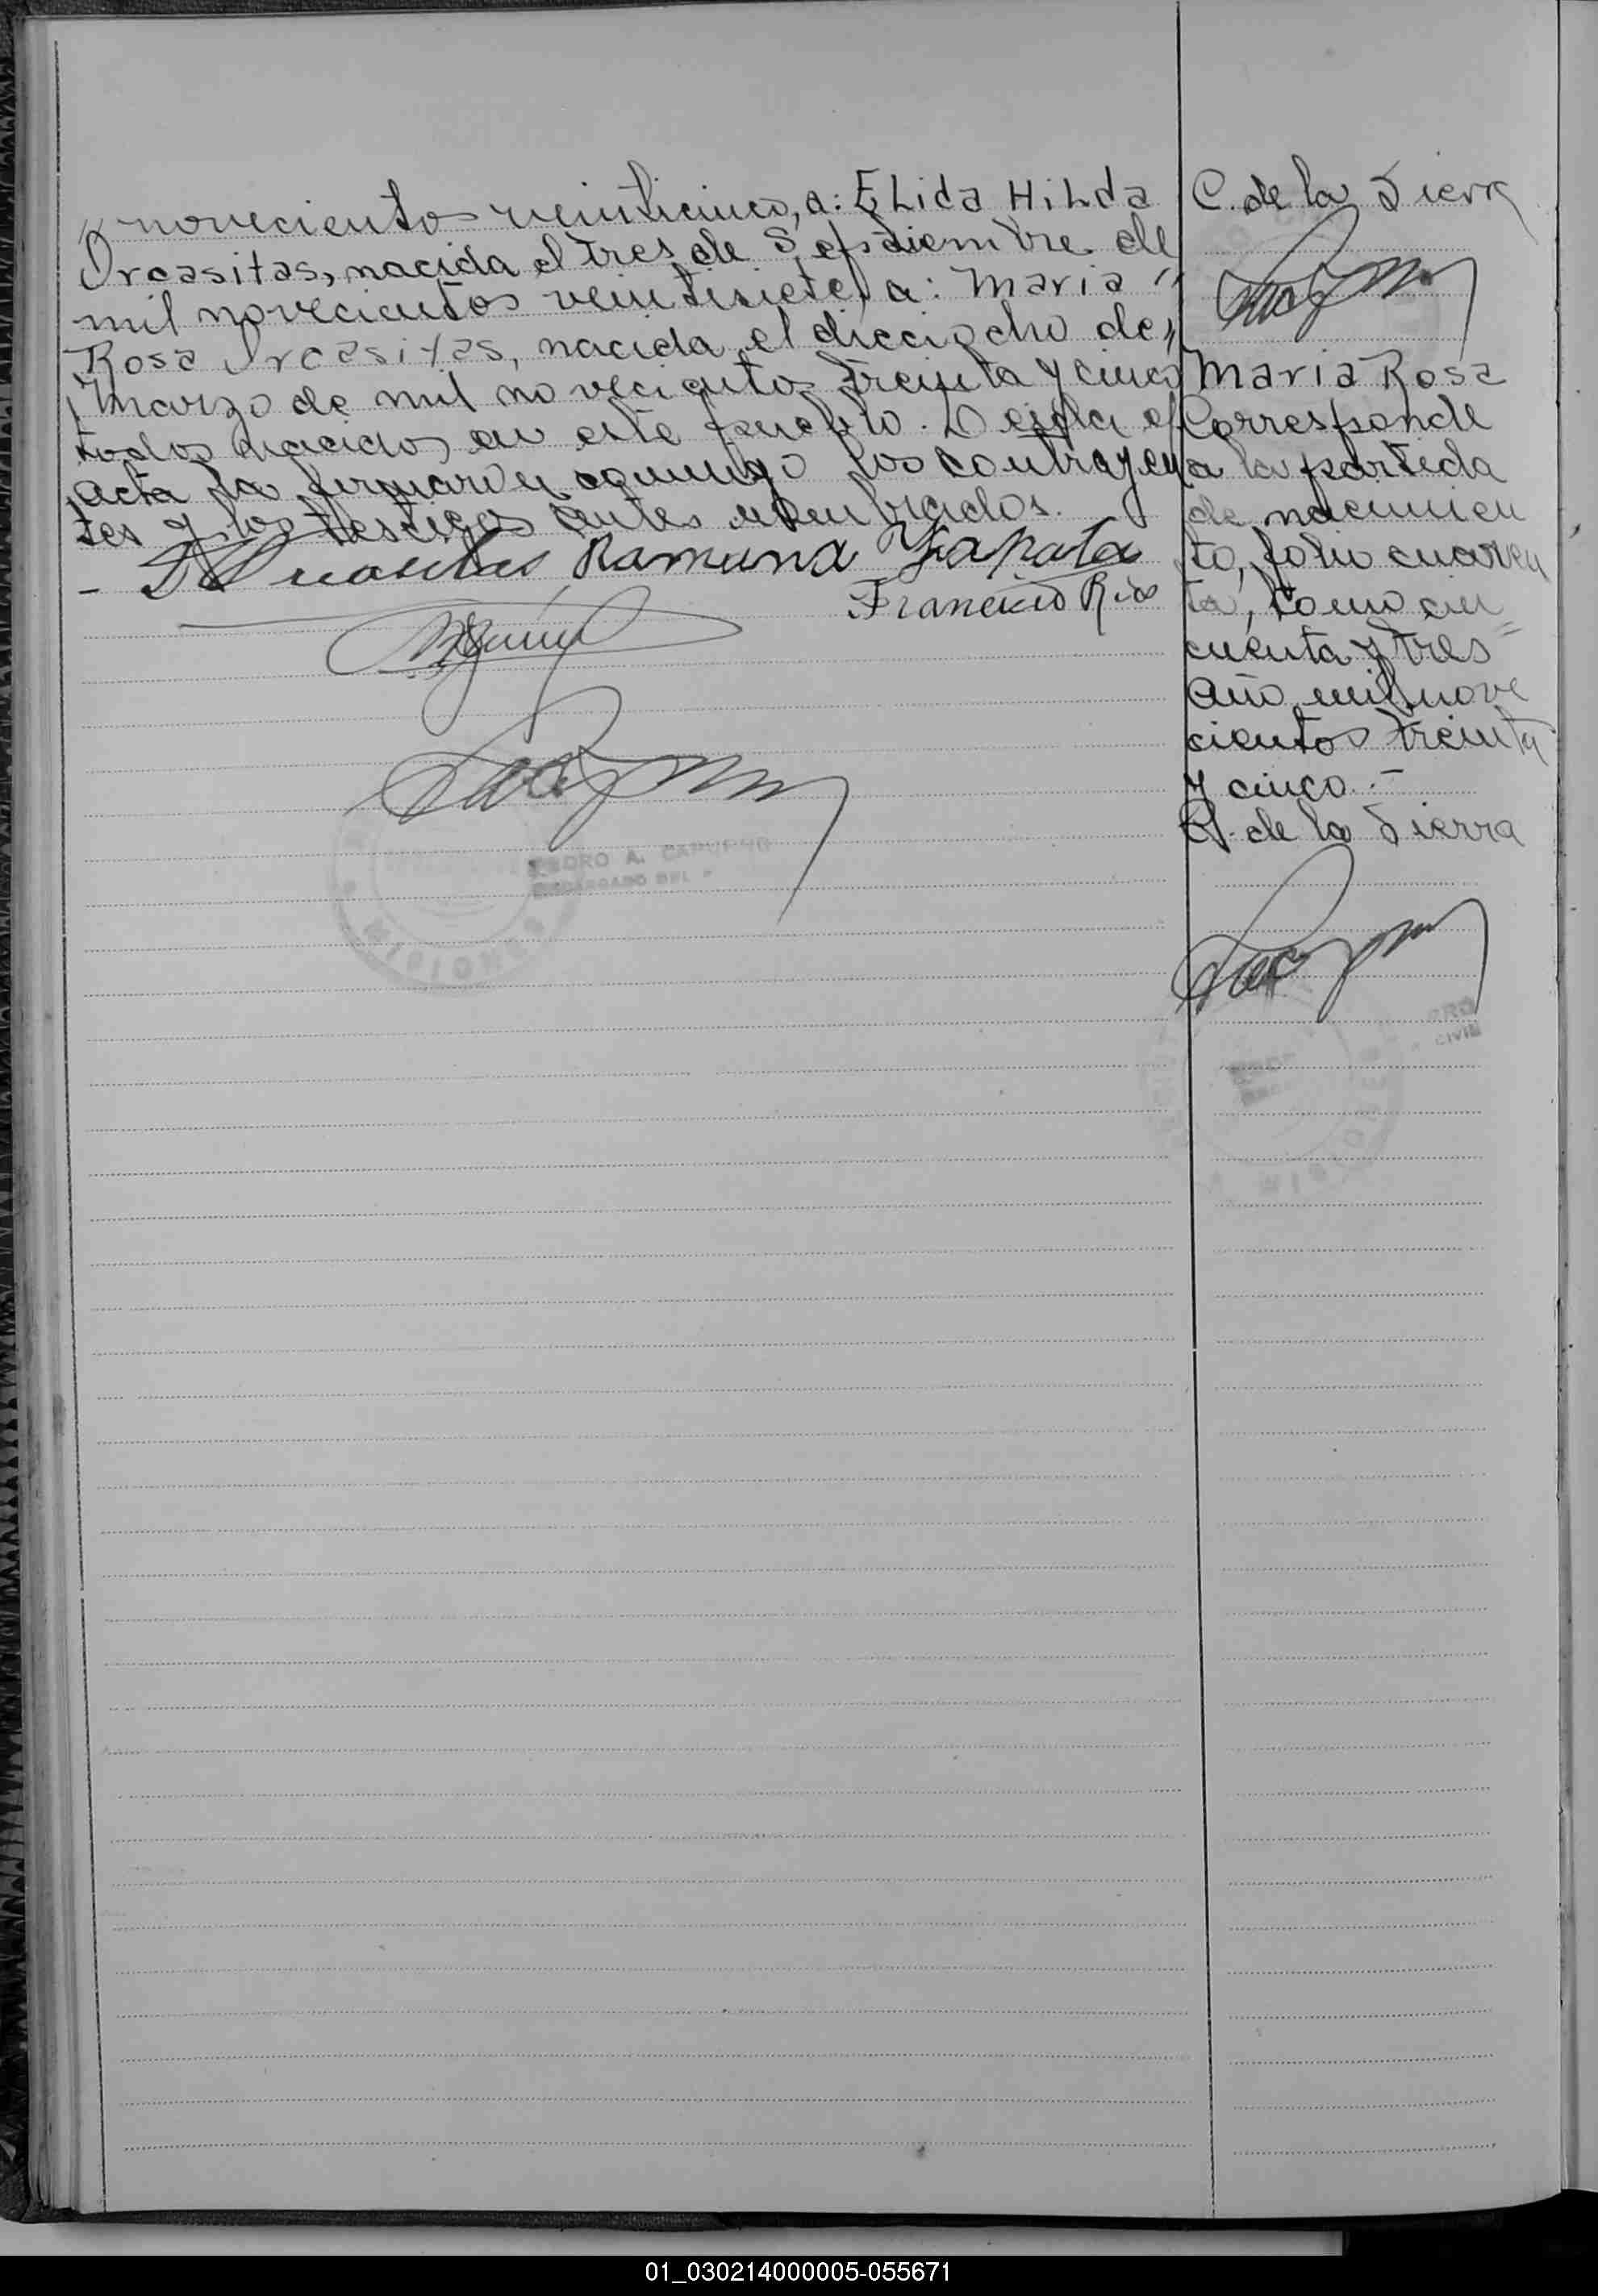 novecientos veinticinco, a: ELida HiLda
Orcasitas, nacida el tres de Septiembre de
mil novecientos veintisiete, a: Maria "
Rosa Orcasitas, nacida el dieciocho de "
Marzo de mil novecientos treinta y cinco
todos nacidos en este pueblo. Leida el
acta la firmaron conmigo los contrayen
tes y los testigos antes nombrados.
Ramona Zapata
Francisco Rios
PEDRO A. CAPURRO
ENCARGADO DEL
C. de la Sierra
Maria Rosa
Corresponde
a la partida
de nacimien
to, folio cuaren
ta, tomo cin
cuenta y tres
año mil nove
cientos treinta
y cinco.-
C. de la Sierra
CIVIL
01_030214000005-055671